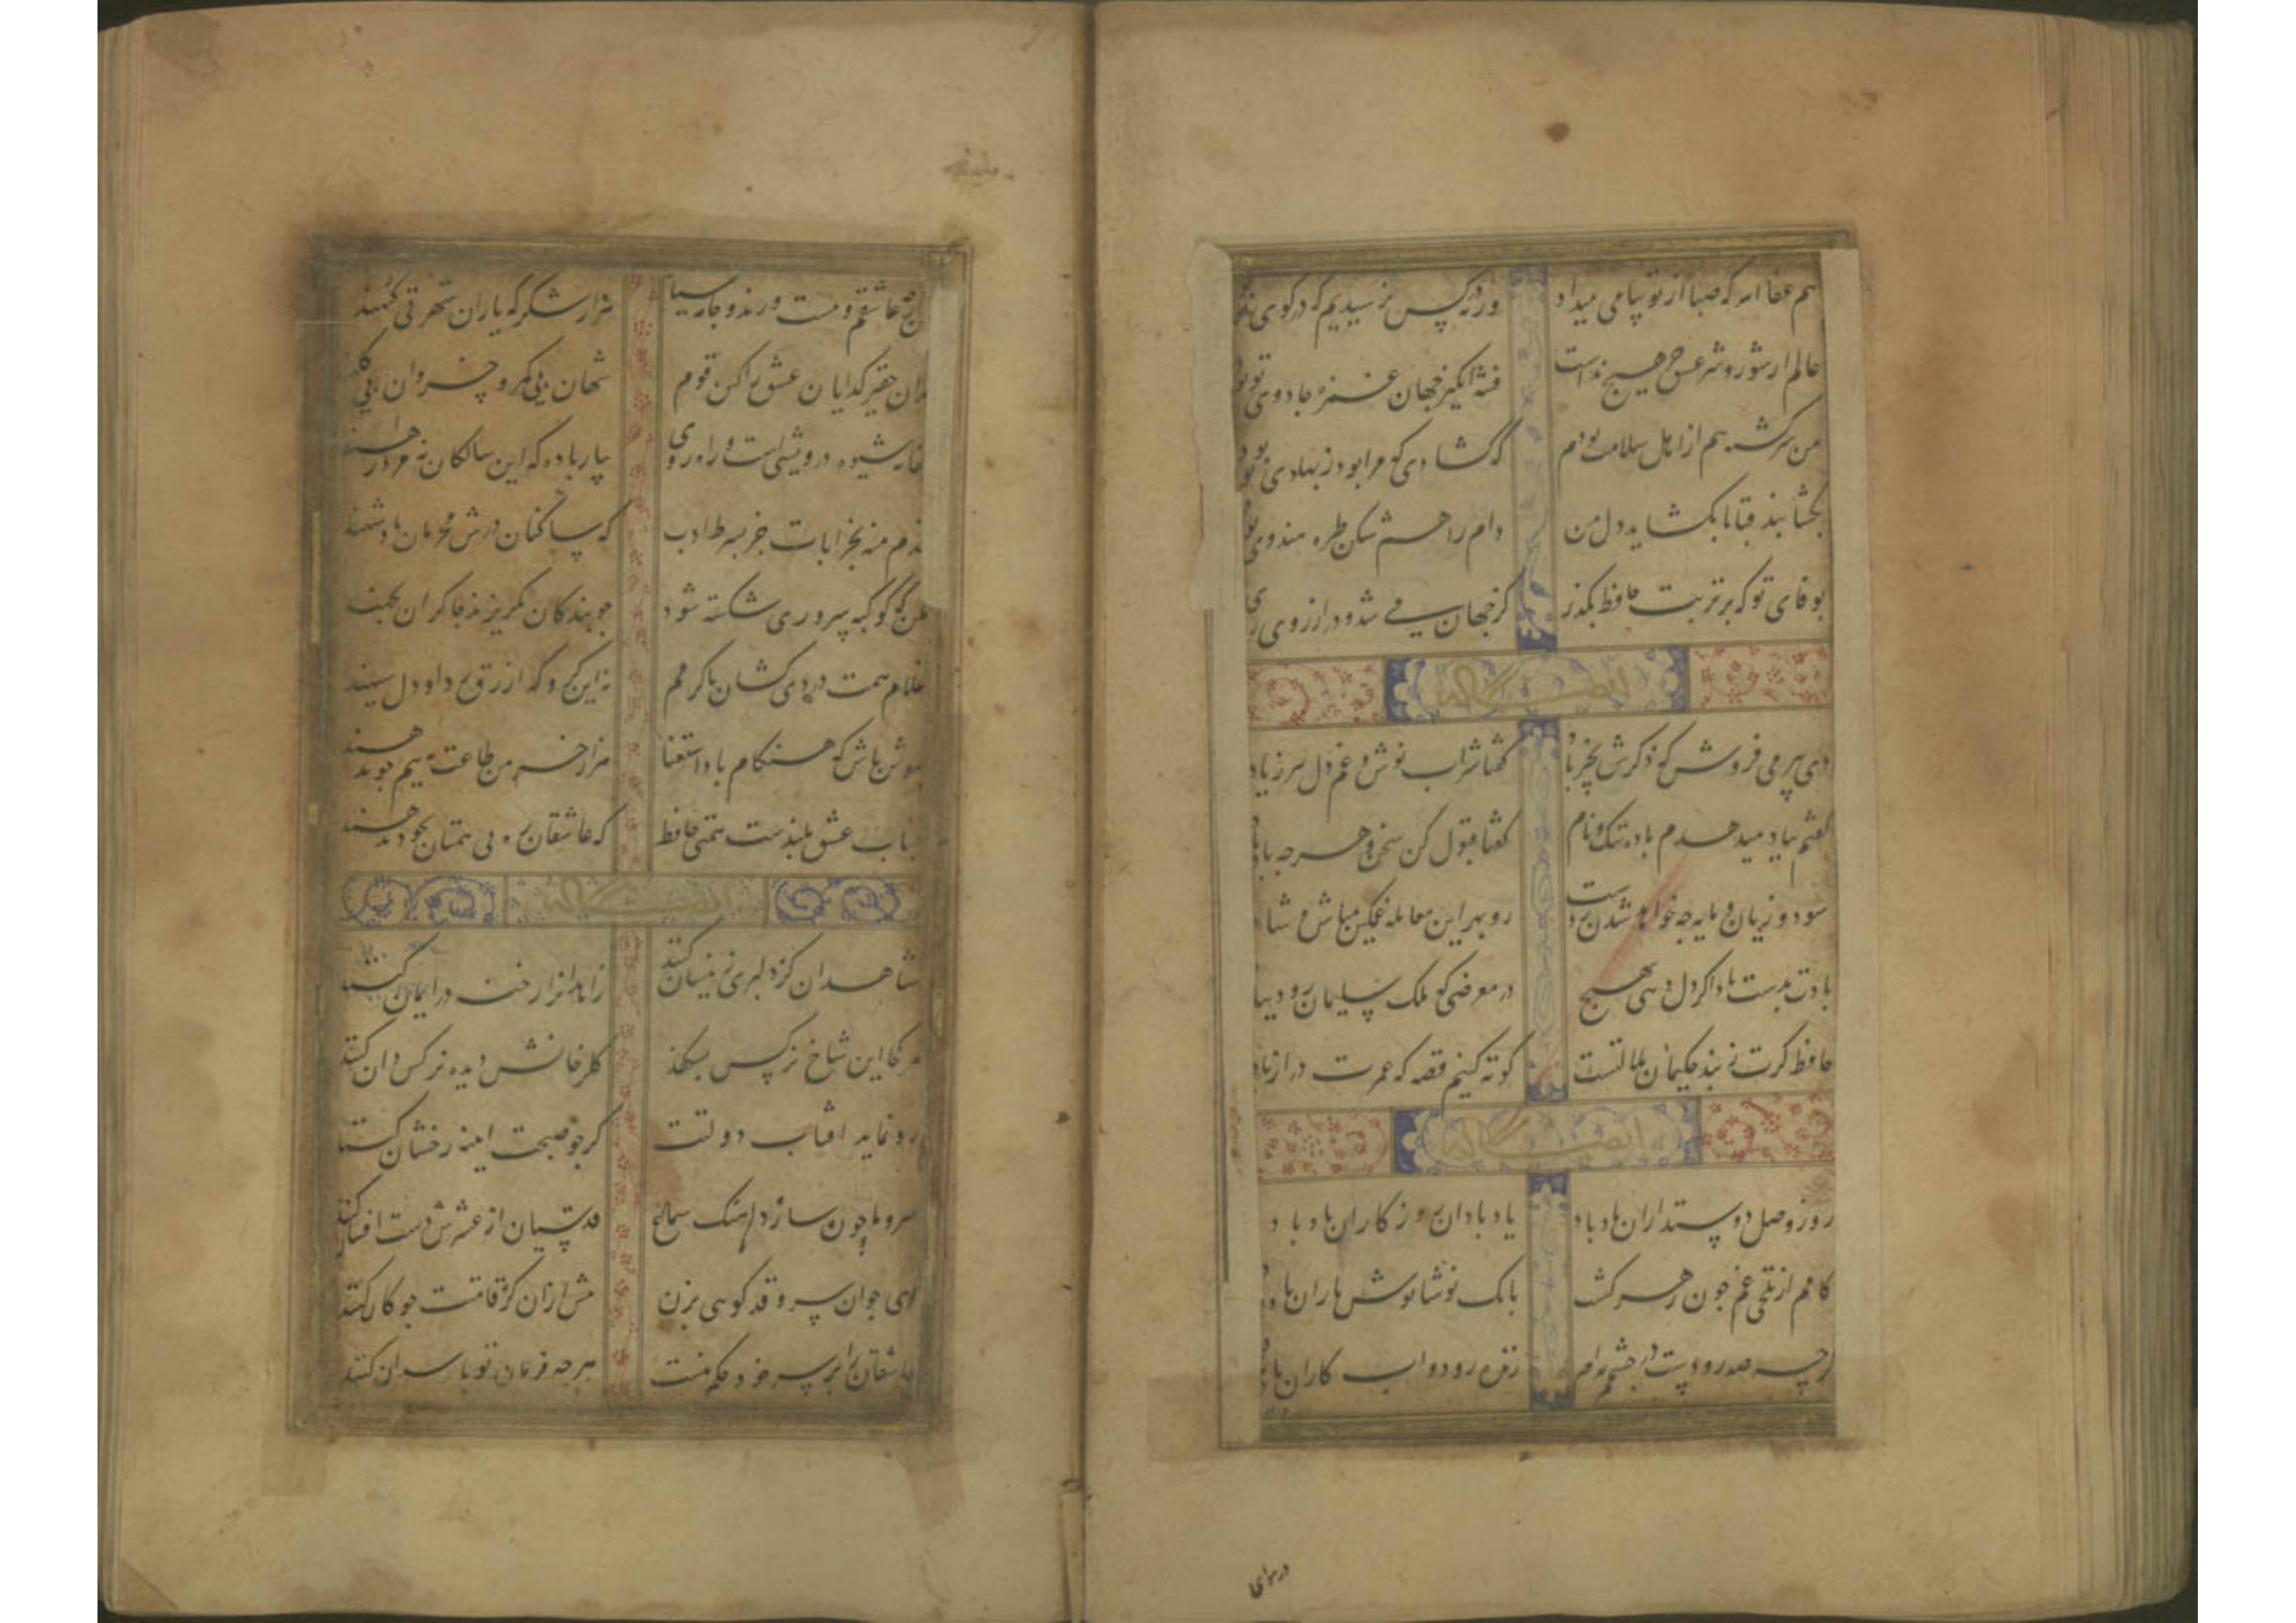 هم عفا الله که صبا از تو پیامی میداد
ورنه در کس نرسیدیم که در کوی تو
عالم از شور و شر عشق خبر هیچ نداشت
فتنه انگیز جهان غمزه جادوی تو بود
من سرکشته هم از اهل سلامت بودم
بکشا بند قبا تا بکشاید دل من
که کشادی که مرا بود ز پهلوی تو بود
دام راهم شکن طره هندوی تو
بوفای تو که بر تربت حافظ بکذر
کز جهان می شد و در ارزوی
ایضا له
دی پیر می فروش که ذکرش بخیر باد
کفتا شراب نوش و غم دل ببر ز یاد
کفتم بباد میدهدم باده ننک و نام
کفتا قبول کن سخن و هرچه باد
سود و زیان و مایه چو خواهد شدن ز دست
رو بهر این معامله غمکین مباش و شا
بادت بدست باشد اکر دل نهی بهیچ
در معرضی که ملک سلیمان رود بباد
حافظ کرت ز پند حکیمان ملالتست
کوته کنیم قصه که عمرت دراز باد
ایضا له
روز وصل دوستداران باد باد
یاد باد ان روزکاران باد باد
کامم از تلخی غم چون زهر کشت
بانک نوشانوش یاران باد
کرچه صد رودست در چشمم
زنده رود و اب کاران باد
در سرای
عاشقم و مست و رند و جامه سیاه
هزار شکر که یاران شهر بی کنهند
مبین حقیر کدایان عشق را کین قوم
شهان بی کمر و خسروان بی کلهند
جفا نه شیوه درویشی است و راه روی
بیار باده که این سالکان نه مرد رهند
قدم منه بخرابات جز بشرط ادب
که ساکنان درش محرمان پادشهند
مکن که کوکبه سروری شکسته شود
چو بندکان بکریزند و چاکران بجهند
غلام همت دردی کشان یک رنکم
نه این کروه که ازرق ردا و دل سیهند
بهوش باش که هنکام باد استغنا
هزار خرمن طاعت به نیم جو بدهند
جناب عشق بلندست همتی حافظ
که عاشقان ره بی همتان بخود ندهند
ایضا له
شاهدان کر دلبری زینسان کنند
زاهدانرا رخنه در ایمان کنند
هر کجا این شاخ نرکس بشکفد
کلرخانش دیده نرکس دان کنند
رو نماید افتاب دولتت
کر چو صبحت اینه رخشان کنند
سرو ما چون سازد اهنک سماع
قدسیان از عرش دست افشان کنند
ای جوان سرو قد کویی بزن
پیش ازان کز قامتت چوکان کنند
عاشقان را بر سر خود حکم نیست
هرچه فرمان تو باشد ان کنند